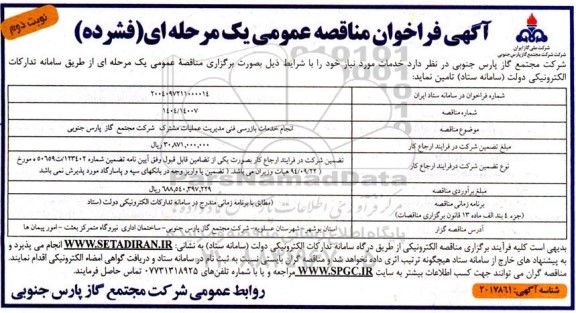 نوبت دوم
آگهی فراخوان مناقصه عمومی یک مرحله ای (فشرده)
شرکت ملی گاز ایران
شرکت مجتمع گاز پارس جنوبی
شرکت مجتمع گاز پارس جنوبی در نظر دارد خدمات مورد نیاز خود را با شرایط ذیل بصورت برگزاری مناقصهٔ عمومی یک مرحله ای از طریق سامانه تدارکات
الکترونیکی دولت (سامانه ستاد) تامین نماید:
شماره فراخوان در سامانه ستاد ایران ۲۰۰۴۰۹۷۲۱۱۰۰۰۰۱۴
شماره مناقصه ۱۴۰۴/۱۴۰۰۷
موضوع مناقصه انجام خدمات بازرسی فنی مدیریت عملیات مشترک شرکت مجتمع گاز پارس جنوبی
مبلغ تضمین شرکت در فرایند ارجاع کار ۳۰,۸۷۱,۰۰۰,۰۰۰ ریال
نوع تضمین شرکت درفرایند ارجاع کار تضمین شرکت در فرایند ارجاع کار بصورت یکی از تضامین قابل قبول وفق آیین نامه تضمین شماره ۱۲۳۴۰۲/ت۵۰۶۵۹ه مورخ
۹۴/۰۹/۲۲ هیات وزیران می باشد. ( تضمین یا واریز وجه در بانکهای سپه و پاسارگاد مورد پذیرش نمی باشد
مبلغ برآوردی مناقصه ۶۸۸,۵۴۰,۳۹۷,۲۲۹ ریال
برنامه زمانی مناقصه
(جزء ٤ بند الف ماده ۱۳ قانون برگزاری مناقصات) (مطابق با برنامه زمانی مندرج در سامانه تدارکات الکترونیکی دولت (ستاد)
آدرس مناقصه گزار استان بوشهر- شهرستان عسلویه- شرکت مجتمع گاز پارس جنوبی- ساختمان اداری نیروگاه متمرکز بعثت - امور پیمان ها
بدیهی است کلیه فرآیند برگزاری مناقصه الکترونیکی از طریق درگاه سامانه تدارکات الکترونیکی دولت (سامانه ستاد) به نشانی: WWW.SETADIRAN.IR انجام می پذیرد و
به پیشنهاد های خارج از سامانه ستاد هیچگونه ترتیب اثری داده نخواهد شد و مناقصه گران باید نسبت به ثبت نام در سامانه ستاد و دریافت گواهی امضاء الکترونیکی اقدام نمایند.
مناقصه گران می توانند جهت کسب اطلاعات بیشتر به سایت WWW.SPGC.IR مراجعه و یا با شماره تلفن های ۰۷۷۳۱۳۱۸۹۲۵ تماس حاصل فرمایند.
شناسه آگهی: ۲۰۱۷۸۶۱
روابط عمومی شرکت مجتمع گاز پارس جنوبی